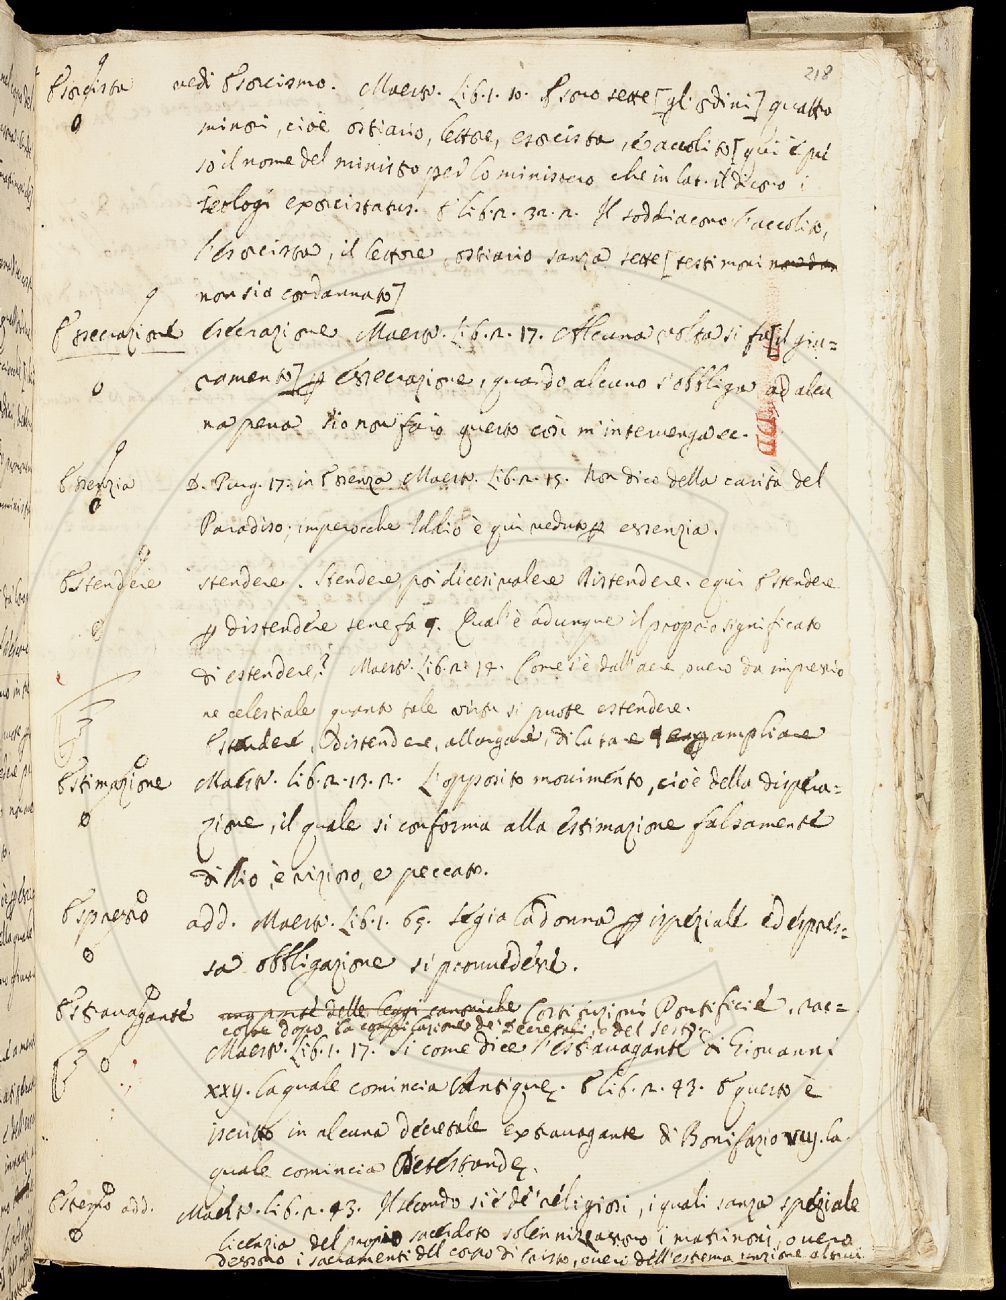 218
Esorcista vedi Esorcismo. Maestr. Lib. 1. 10. E sono sette [gli ordini] quattro
minori, cioè ostiario, lettore, esorcista, e accolito [qui è pre
so il nome del ministro per lo ministero che in lat. il dicono i
Teologi exorcistatus. E lib. 2. 32. 2. Il soddiacono l'accolito,
l'esorcista, il lettore, ostiario sanza sette [testimoni
non sia condannato]
Essecrazione Esecrazione Maestr. Lib. 2. 17. Alcuna volta si fa [il giu=
ramento] per esecrazione, quando alcuno s'obbliga ad alcu
na pena s'io non faro questo cosi m'intervenga ec.
Essenzia D. Purg. 17. in Essenza Maestr. Lib. 2. 15. Non dico della carità del
Paradiso; imperocche Iddio è qui veduto per essenzia.
Estendere stendere. Stendere poi dicesi valere Distendere. e qui Estendere
per distendere sene fa 9. Qual'è adunque il proprio significato
di estendere? Maestr. Lib. 2. 14. Come s'è dall'aere, overo da impressio
ne celestiale quanto tale virtù si puote estendere.
Estendere, distendere, allargare, dilatare ampliare
Estimazione Maestr. Lib. 2. 13. 2. L'opposito movimento, cioè della dispera=
zione, il quale si conforma alla estimazione falsamente
di Dio, è vizioso, e peccato.
Espresso add. Maestr. Lib. 1. 65. Se già la donna per ispeziale ed espres=
sa obbligazione si provvedesse.
Estravagante una parte delle leggi canoniche Costituzioni Pontificie, rac=
colte dopo la compilazione de' Decretali, e del Sesto.
Maestr. Lib. 1. 17. Si come dice l'estravagante di Giovanni
xxij. la quale comincia Antiquę. E lib. 2. 43. E questo è
iscritto in alcuna decretale extravagante di Bonifazio viij. la
quale comincia Detestandę.
Estremo add. Maestr. Lib. 2. 43. Il secondo si è de' religiosi, i quali sanza speziale
licenzia del propio sacerdote solennizzassero i matrimoni, overo
dessono i sacramenti del corpo di Cristo, overo dell'estrema unzione